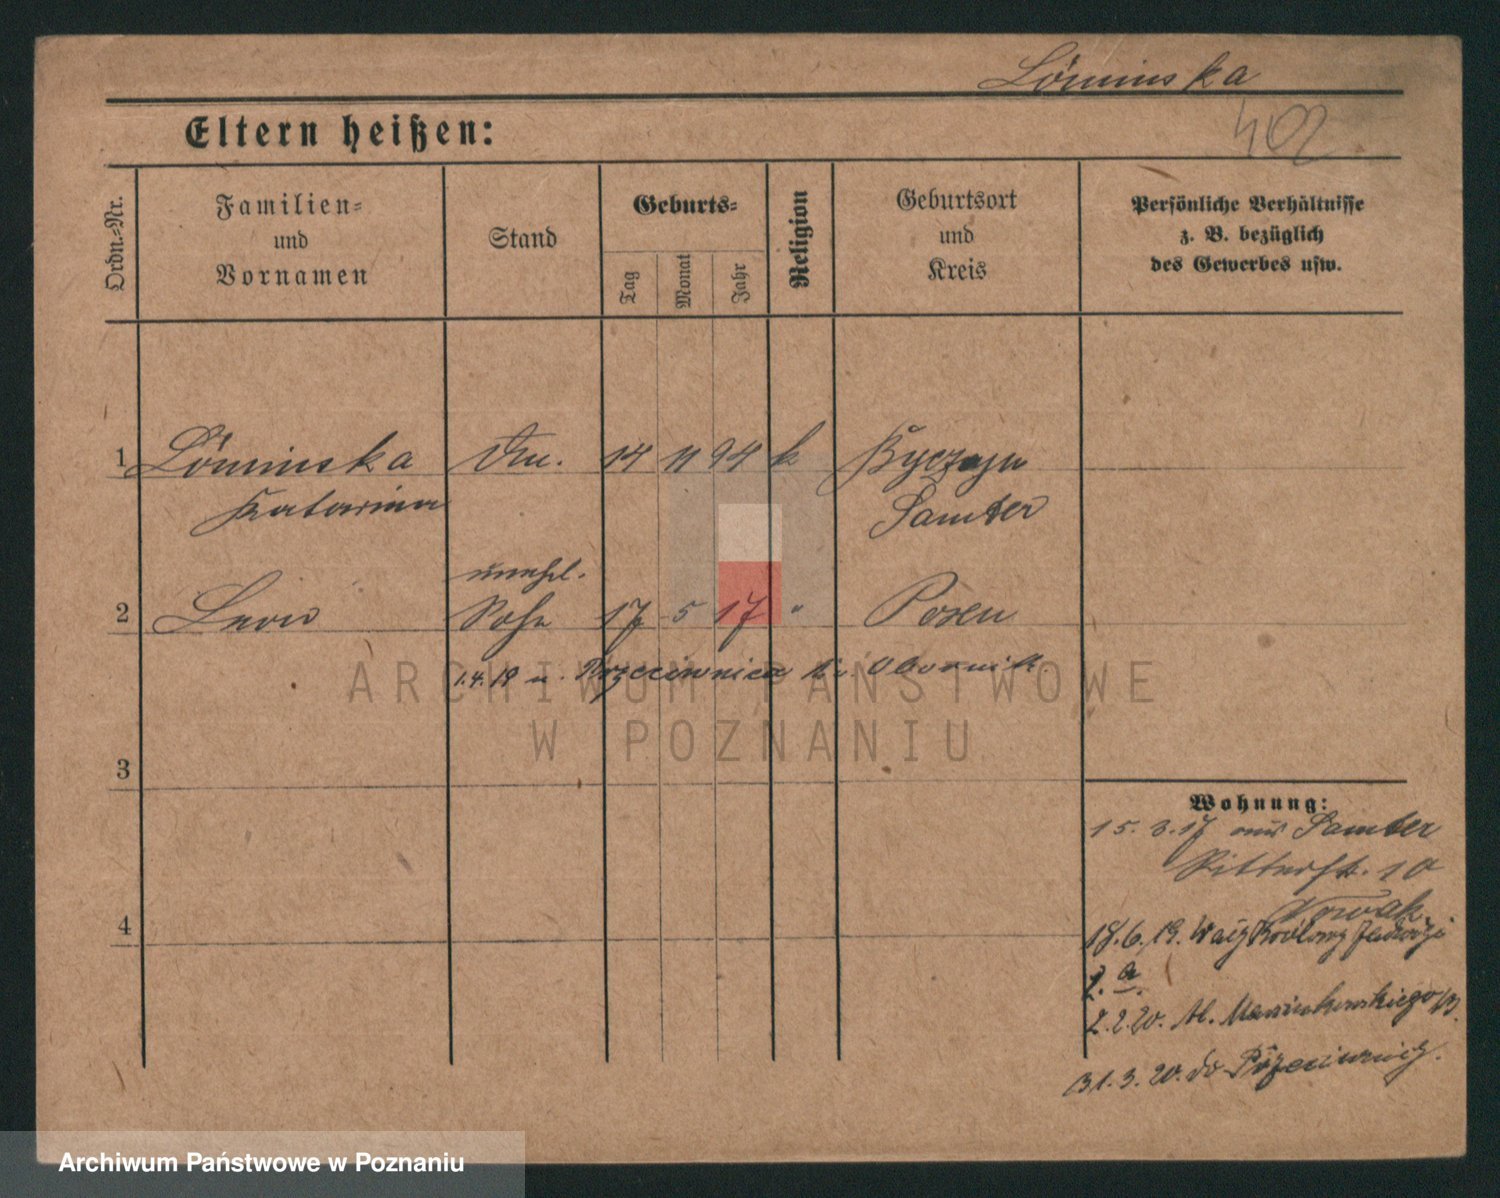 Löminska
402
Eltern heißen:
Ordn.-Nr.
Familien-
und
Vornamen
Stand
Geburts-
Tag
Monat
Jahr
Religion
Geburtsort
und
Kreis
Persönliche Verhältnisse
z. B. bezüglich
des Gewerbes usw.
1 Löminska 14 11 94 k
Katarina Samter
unehl.
2 Leon Sohn 17 5 17 " Posen
1.4.19 n. Obornik
ARCHIWUM PAŃSTWOWE
W POZNANIU
3
Wohnung:
15.3.17 aus Samter
Ritterstr. 10
Nowak
4
18.6.19. Jadwigi
2. a.
2.2.20. Al. Marcinkowskiego
31.3.20. do
Archiwum Państwowe w Poznaniu